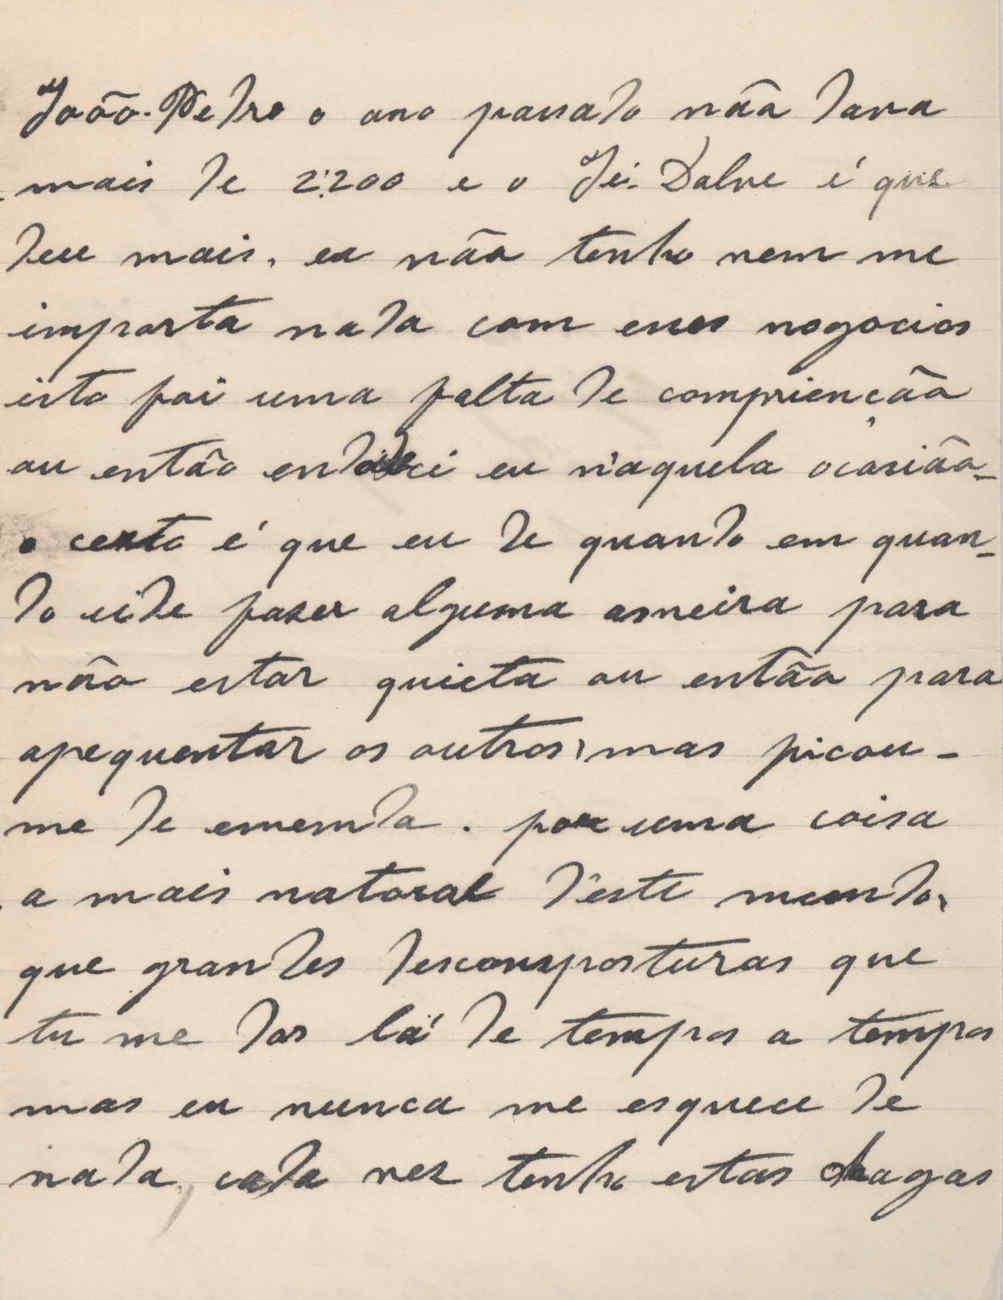 João Pedro o ano passado não dava
mais de 2:200 e o Dalve é que
deu mais. eu não tenho nem me
importa nada com esses nogocios
isto foi uma falta de comprienção
ou então endoideci eu n'aquela ocasião
o certo é que eu de quando em quan-
do ei de faser alguma asneira para
não estar quieta ou então para
apequentar os outros, mas picou-
me de emenda. por uma coisa
a mais natoral d'este mundo,
que grandes descomposturas que
tu me das lá de tempos a tempos
mas eu nunca me esquece de
nada, cada vez tenho estas chagas